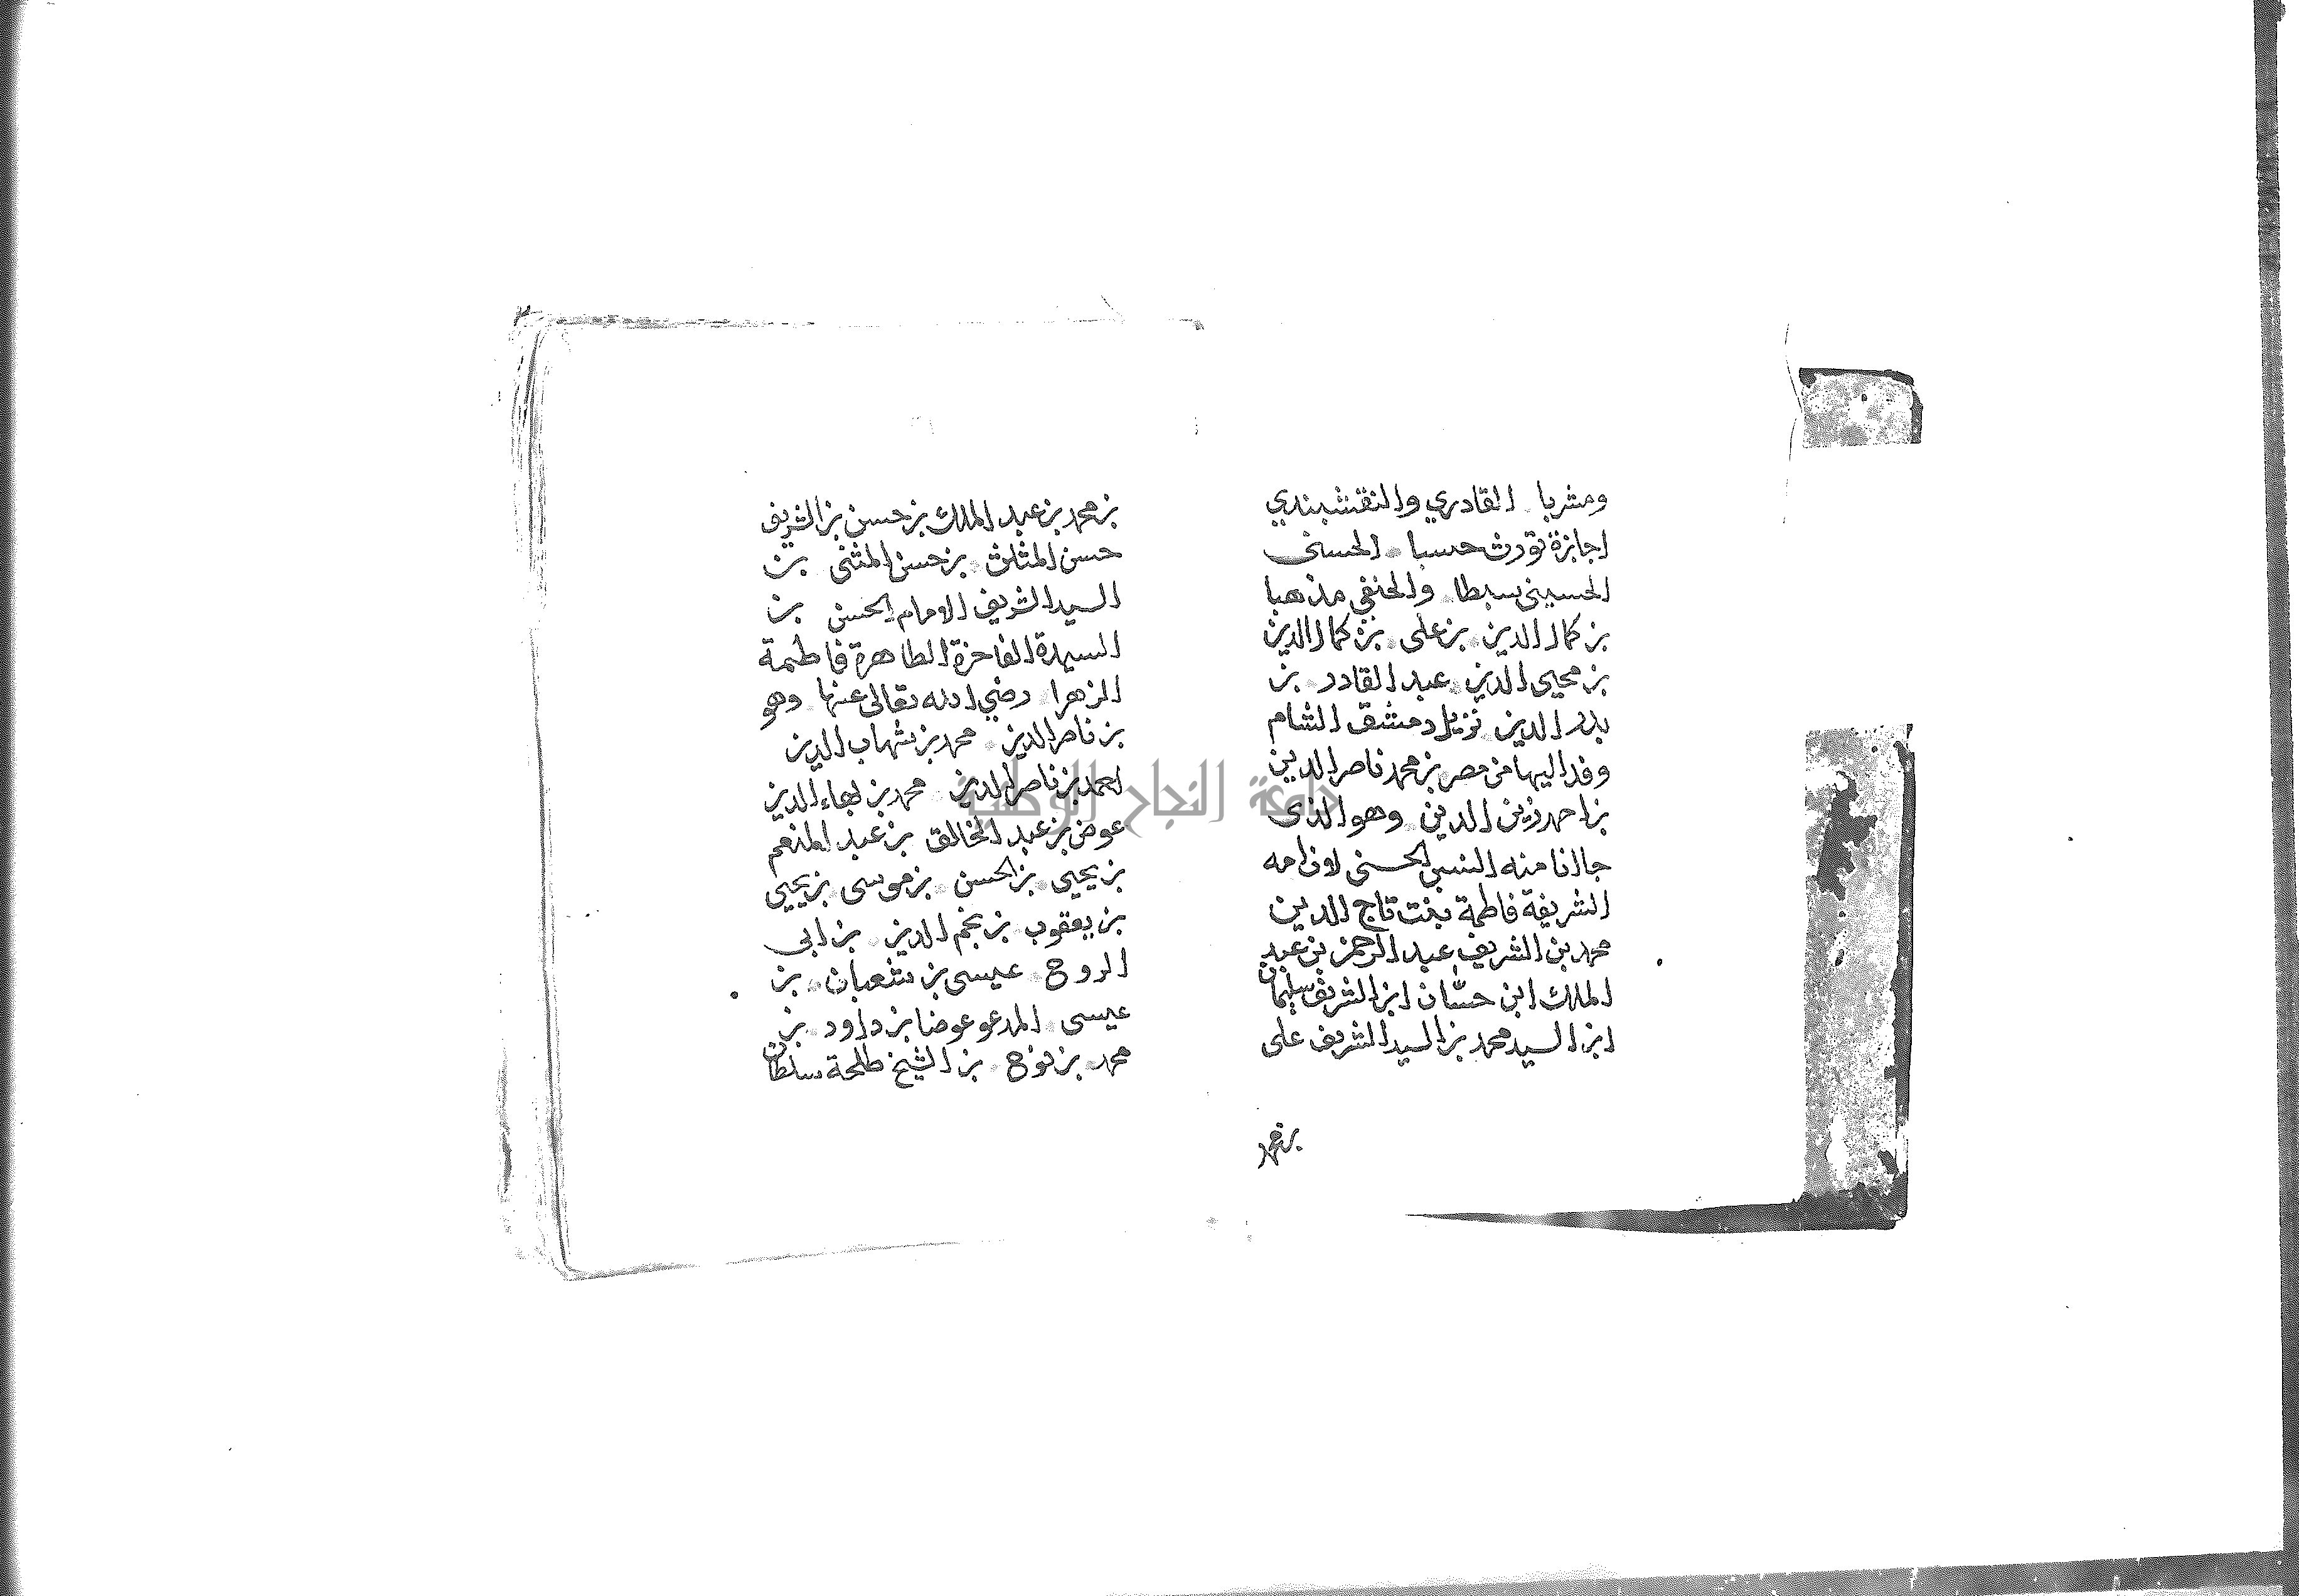 ومشربا القادري والنقشبندي
اجازة تورث حسبا الحسنى
الحسينى سبطا والحنفي مذهبا
بن كمال الدين بن على بن كمال الدين
بن محيى الدين عبد القادر بن
بدر الدين نزيل دمشق الشام
وفد اليها من مصر بن محمد ناصر الدين
بن احمد زين الدين وهو الذى
جاانا منه النسب الحسنى لان امه
الشريفة فاطمة بنت تاج الدين
محمد بن الشريف عبد الرحمن بن عبد
الملك ابن حسّان ابن الشريف سليمان
ابن السيد محمد بن السيد الشريف على
بن محمد
بن محمد بن عبد الملك بن حسن بن الشريف
حسن المثلث بن حسن المثنى بن
السيد الشريف الامام الحسن بن
السيدة الفاخرة الطاهرة فاطمة
الزهرا رضي الله تعالى عنها وهو
بن ناصر الدين محمد بن شهاب الدين
احمد بن ناصر الدين محمد بن بهاء الدين
عوض بن عبد الخالق بن عبد المنعم
بن يحيى بن الحسن بن موسى بن يحيى
بن يعقوب بن نجم الدين بن ابى
الروح عيسى بن شعبان بن
عيسى المدعو عوضا بن داود بن
محمد بن نوح بن الشيخ طلحة سلطان
جامعة النجاح الوطنية